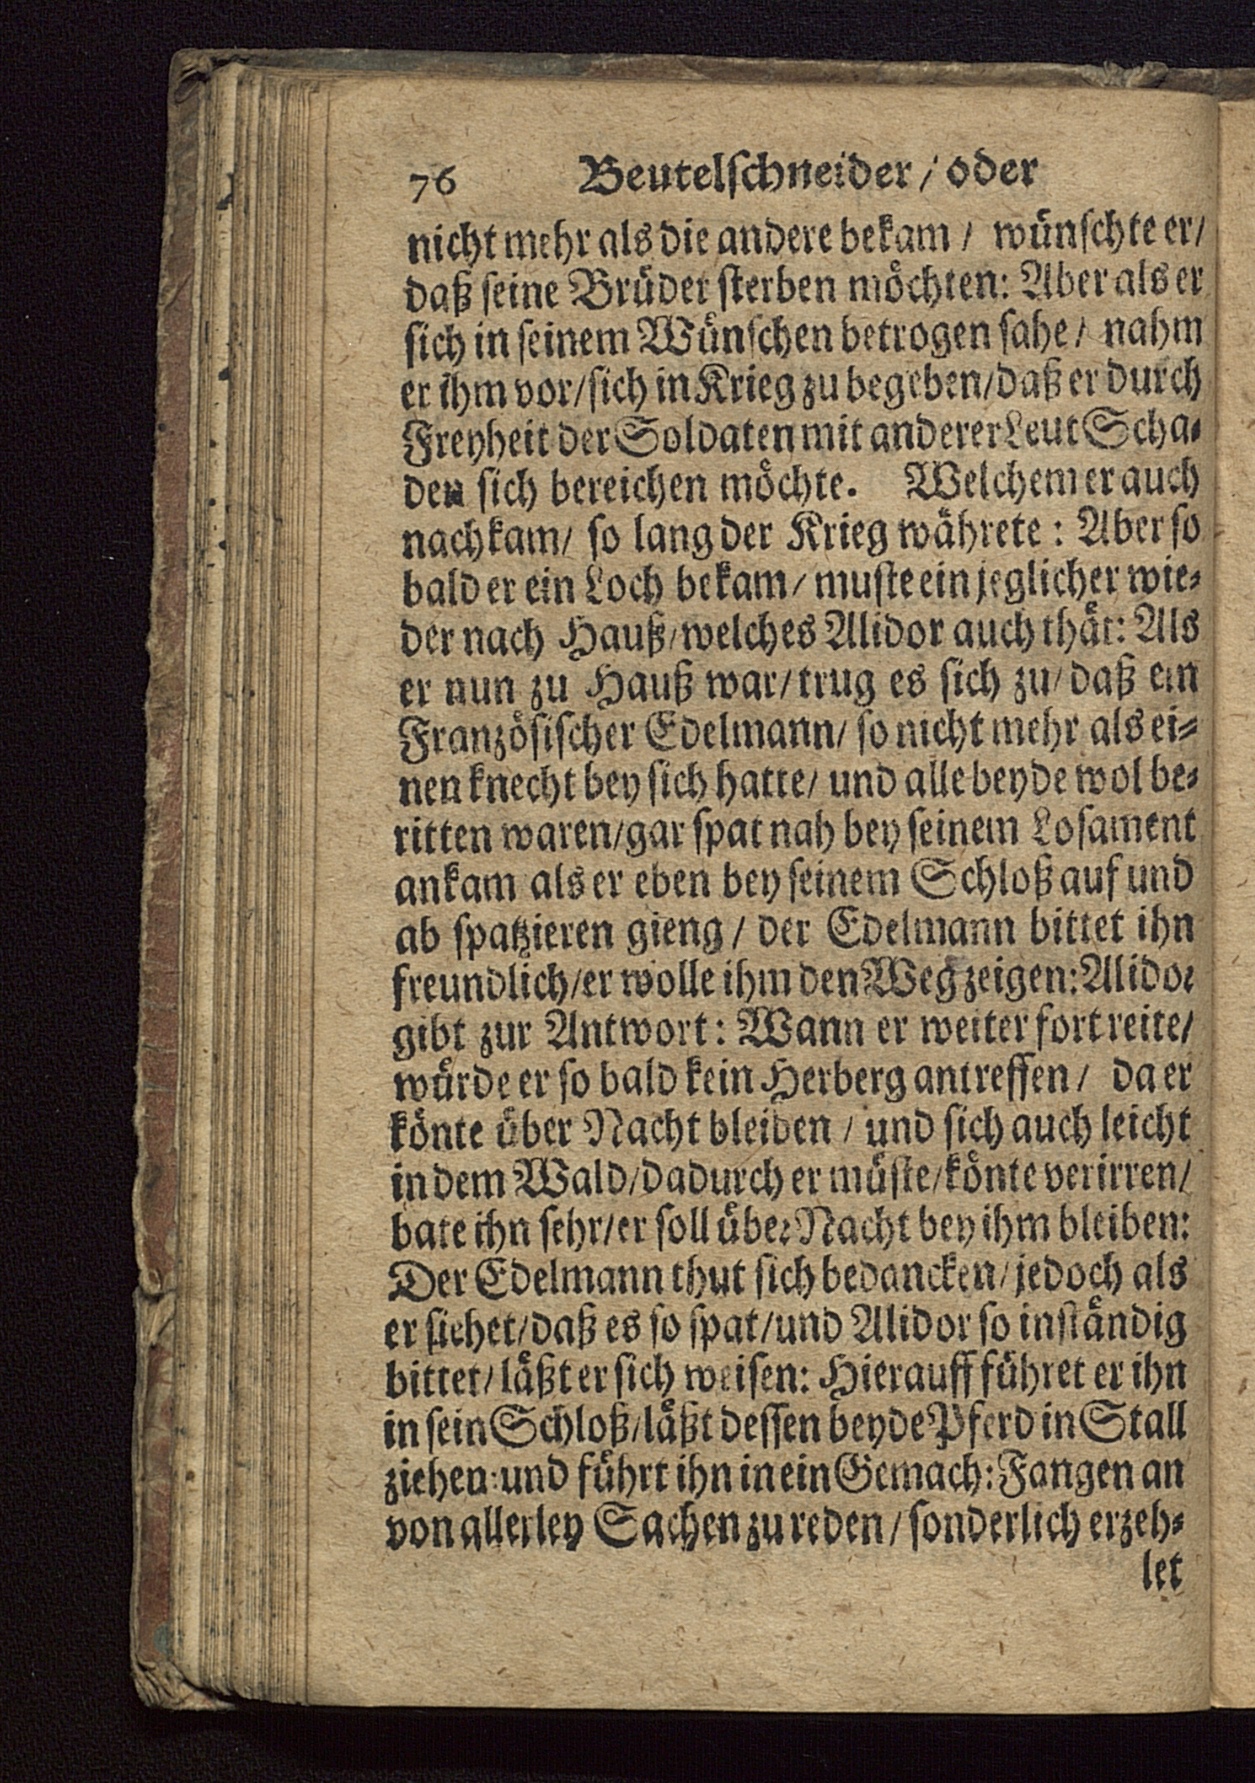 76 Beutelschneider / oder
nicht mehr als die andere bekam / wünschte er/
daß seine Brüder sterben möchten: Aber als er
sich in seinem Wünschen betrogen sahe / nahm
er ihm vor/sich in Krieg zu begeben/daß er durch
Freyheit der Soldaten mit anderer Leut Scha-
den sich bereichen möchte. Welchem er auch
nachkam/ so lang der Krieg währete: Aber so
bald er ein Loch bekam/ muste ein jeglicher wie-
der nach Hauß/welches Alidor auch thät: Als
er nun zu Hauß war/trug es sich zu/daß ein
Französischer Edelmann/ so nicht mehr als ei-
nen knecht bey sich hatte/ und alle beyde wol be-
ritten waren/gar spat nah bey seinem Losament
ankam als er eben bey seinem Schloß auf und
ab spatzieren gieng / der Edelmann bittet ihn
freundlich/er wolle ihm den Weg zeigen: Alidor
gibt zur Antwort: Wann er weiter fort reite/
würde er so bald kein Herberg antreffen/ da er
könte über Nacht bleiben / und sich auch leicht
in dem Wald/dadurch er müste/könte verirren/
bate ihn sehr/er soll über Nacht bey ihm bleiben:
Der Edelmann thut sich bedancken/jedoch als
er siehet/daß es so spat/und Alidor so inständig
bittet/läßt er sich weisen: Hierauff führet er ihn
in sein Schloß/läßt dessen beyde Pferd in Stall
ziehen: und führt ihn in ein Gemach: Fangen an
von allerley Sachen zu reden / sonderlich erzeh-
let